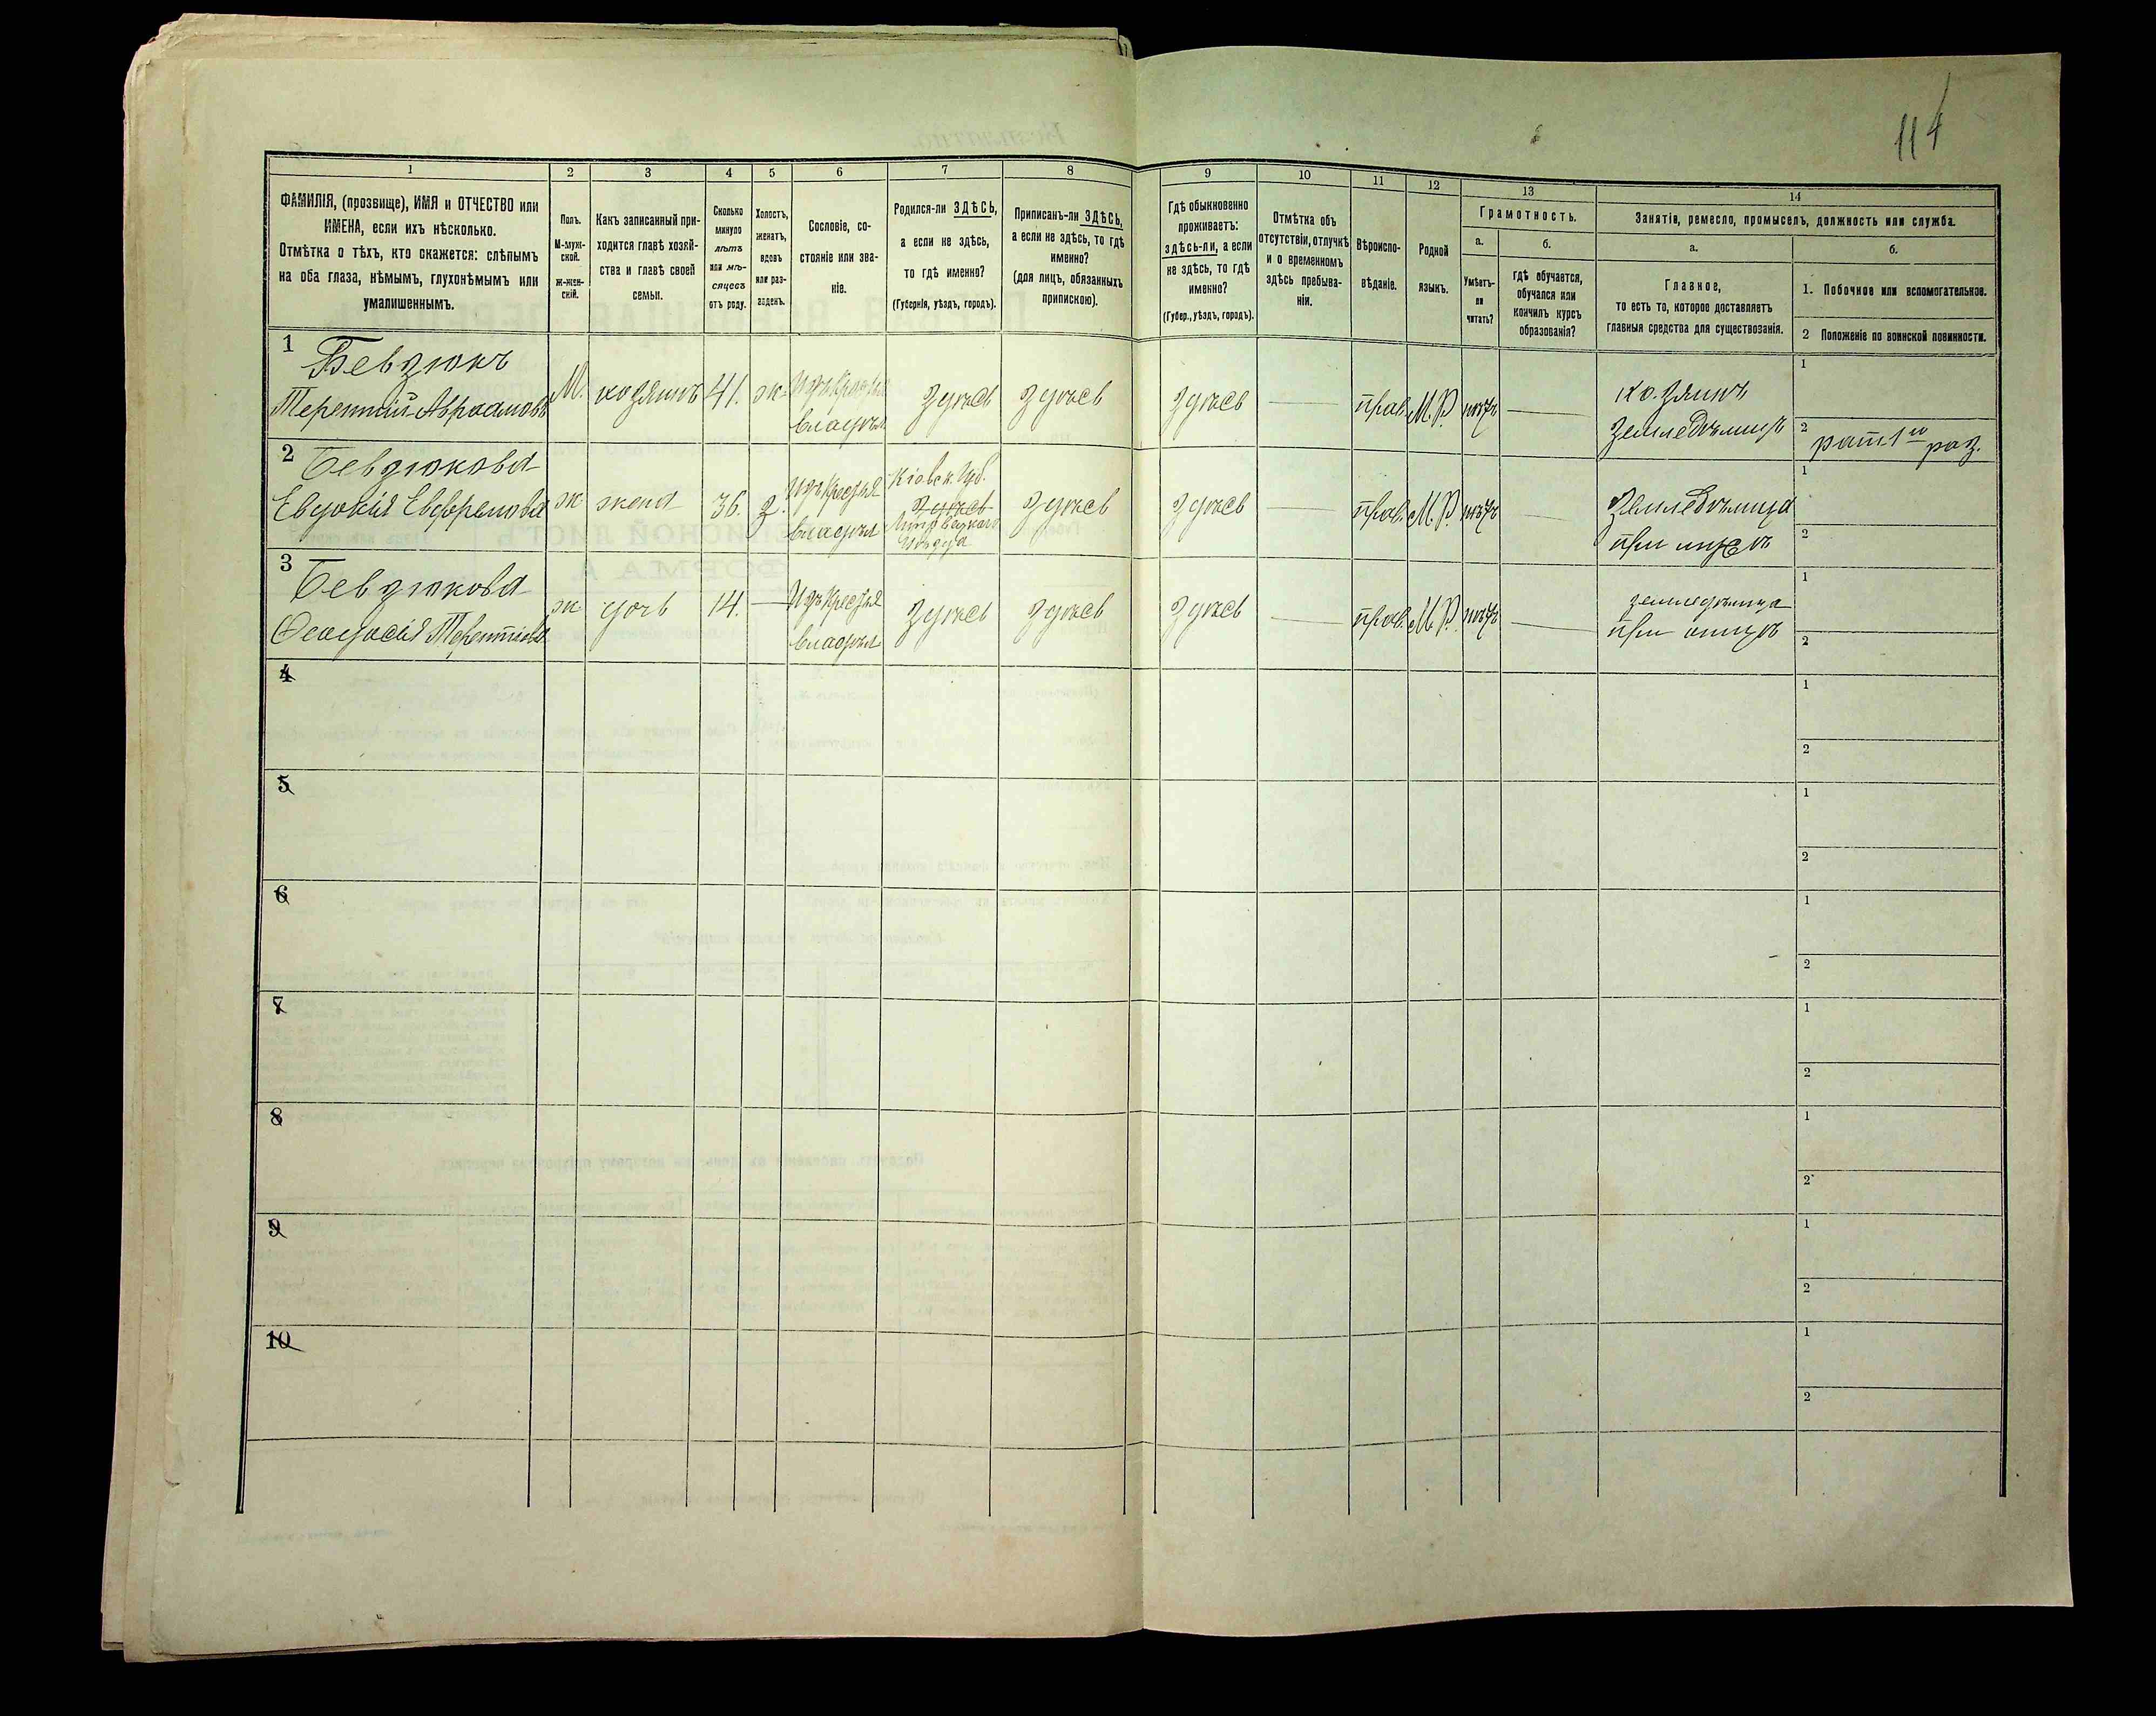 114
1
2
3
4
5
6
7
8
9
10
11
12
13
14
ФАМИЛІЯ, (прозвище), ИМЯ и ОТЧЕСТВО или
ИМЕНА, если ихъ нѣсколько.
Отмѣтка о тѣхъ, кто окажется: слѣпымъ
на оба глаза, нѣмымъ, глухонѣмымъ или
умалишеннымъ.
Полъ.
М-муж-
ской.
Ж-жен-
скій.
Какъ записанный при-
ходится главѣ хозяй-
ства и главѣ своей
семьи.
Сколько
минуло
лѣтъ
или мѣ-
сяцевъ
отъ роду.
Холостъ,
женатъ,
вдовъ
или раз-
веденъ.
Сословіе, со-
стояніе или зва-
ніе.
Родился-ли ЗДѢСЬ,
а если не здѣсь,
то гдѣ именно?
(Губернія, уѣздъ, городъ).
Приписанъ-ли ЗДѢСЬ,
а если не здѣсь, то гдѣ
именно?
(для лицъ, обязанныхъ
припискою).
Гдѣ обыкновенно
проживаетъ:
здѣсь-ли, а если
не здѣсь, то гдѣ
именно?
(Губер., уѣздъ, городъ).
Отмѣтка объ
отсутствіи, отлучкѣ
и о временномъ
здѣсь пребыва-
ніи.
Вѣроиспо-
вѣданіе.
Родной
языкъ.
Грамотность.
а.
Умѣетъ-
ли
читать?
б.
гдѣ обучается,
обучался или
кончилъ курсъ
образованія?
Занятіе, ремесло, промыселъ, должность или служба.
а.
Главное,
то есть то, которое доставляетъ
главныя средства для существованія.
б.
1. Побочное или вспомогательное.
2 Положеніе по воинской повинности.
1
Бевзюкъ
Терентій Авраамовъ
М.
хозяинъ
41.
ж.
Изъ Крестья
владѣл
здѣсь
здѣсь
здѣсь
прав.
М. Р.
нѣтъ
хозяинъ
земледѣлецъ
1
2
рат 1го раз.
2
Бевзюкова
Евдокія Евфремова
ж
жена
36.
з.
Изъ Крестья
владѣл
Кіевск. Губ.
здѣсь
Липовецкаго
Уѣзда
здѣсь
здѣсь
прав.
М. Р.
нѣтъ
Земледѣлица
при мужѣ
1
2
3
Бевзюкова
Феодосія Терентіева
ж
дочь
14.
Изъ Крестья
владѣл
здѣсь
здѣсь
здѣсь
прав.
М. Р.
нѣтъ
земледѣлица
при отцѣ
1
2
4
1
2
5
1
2
6
1
2
7
1
2
8
1
2
9
1
2
10
1
2